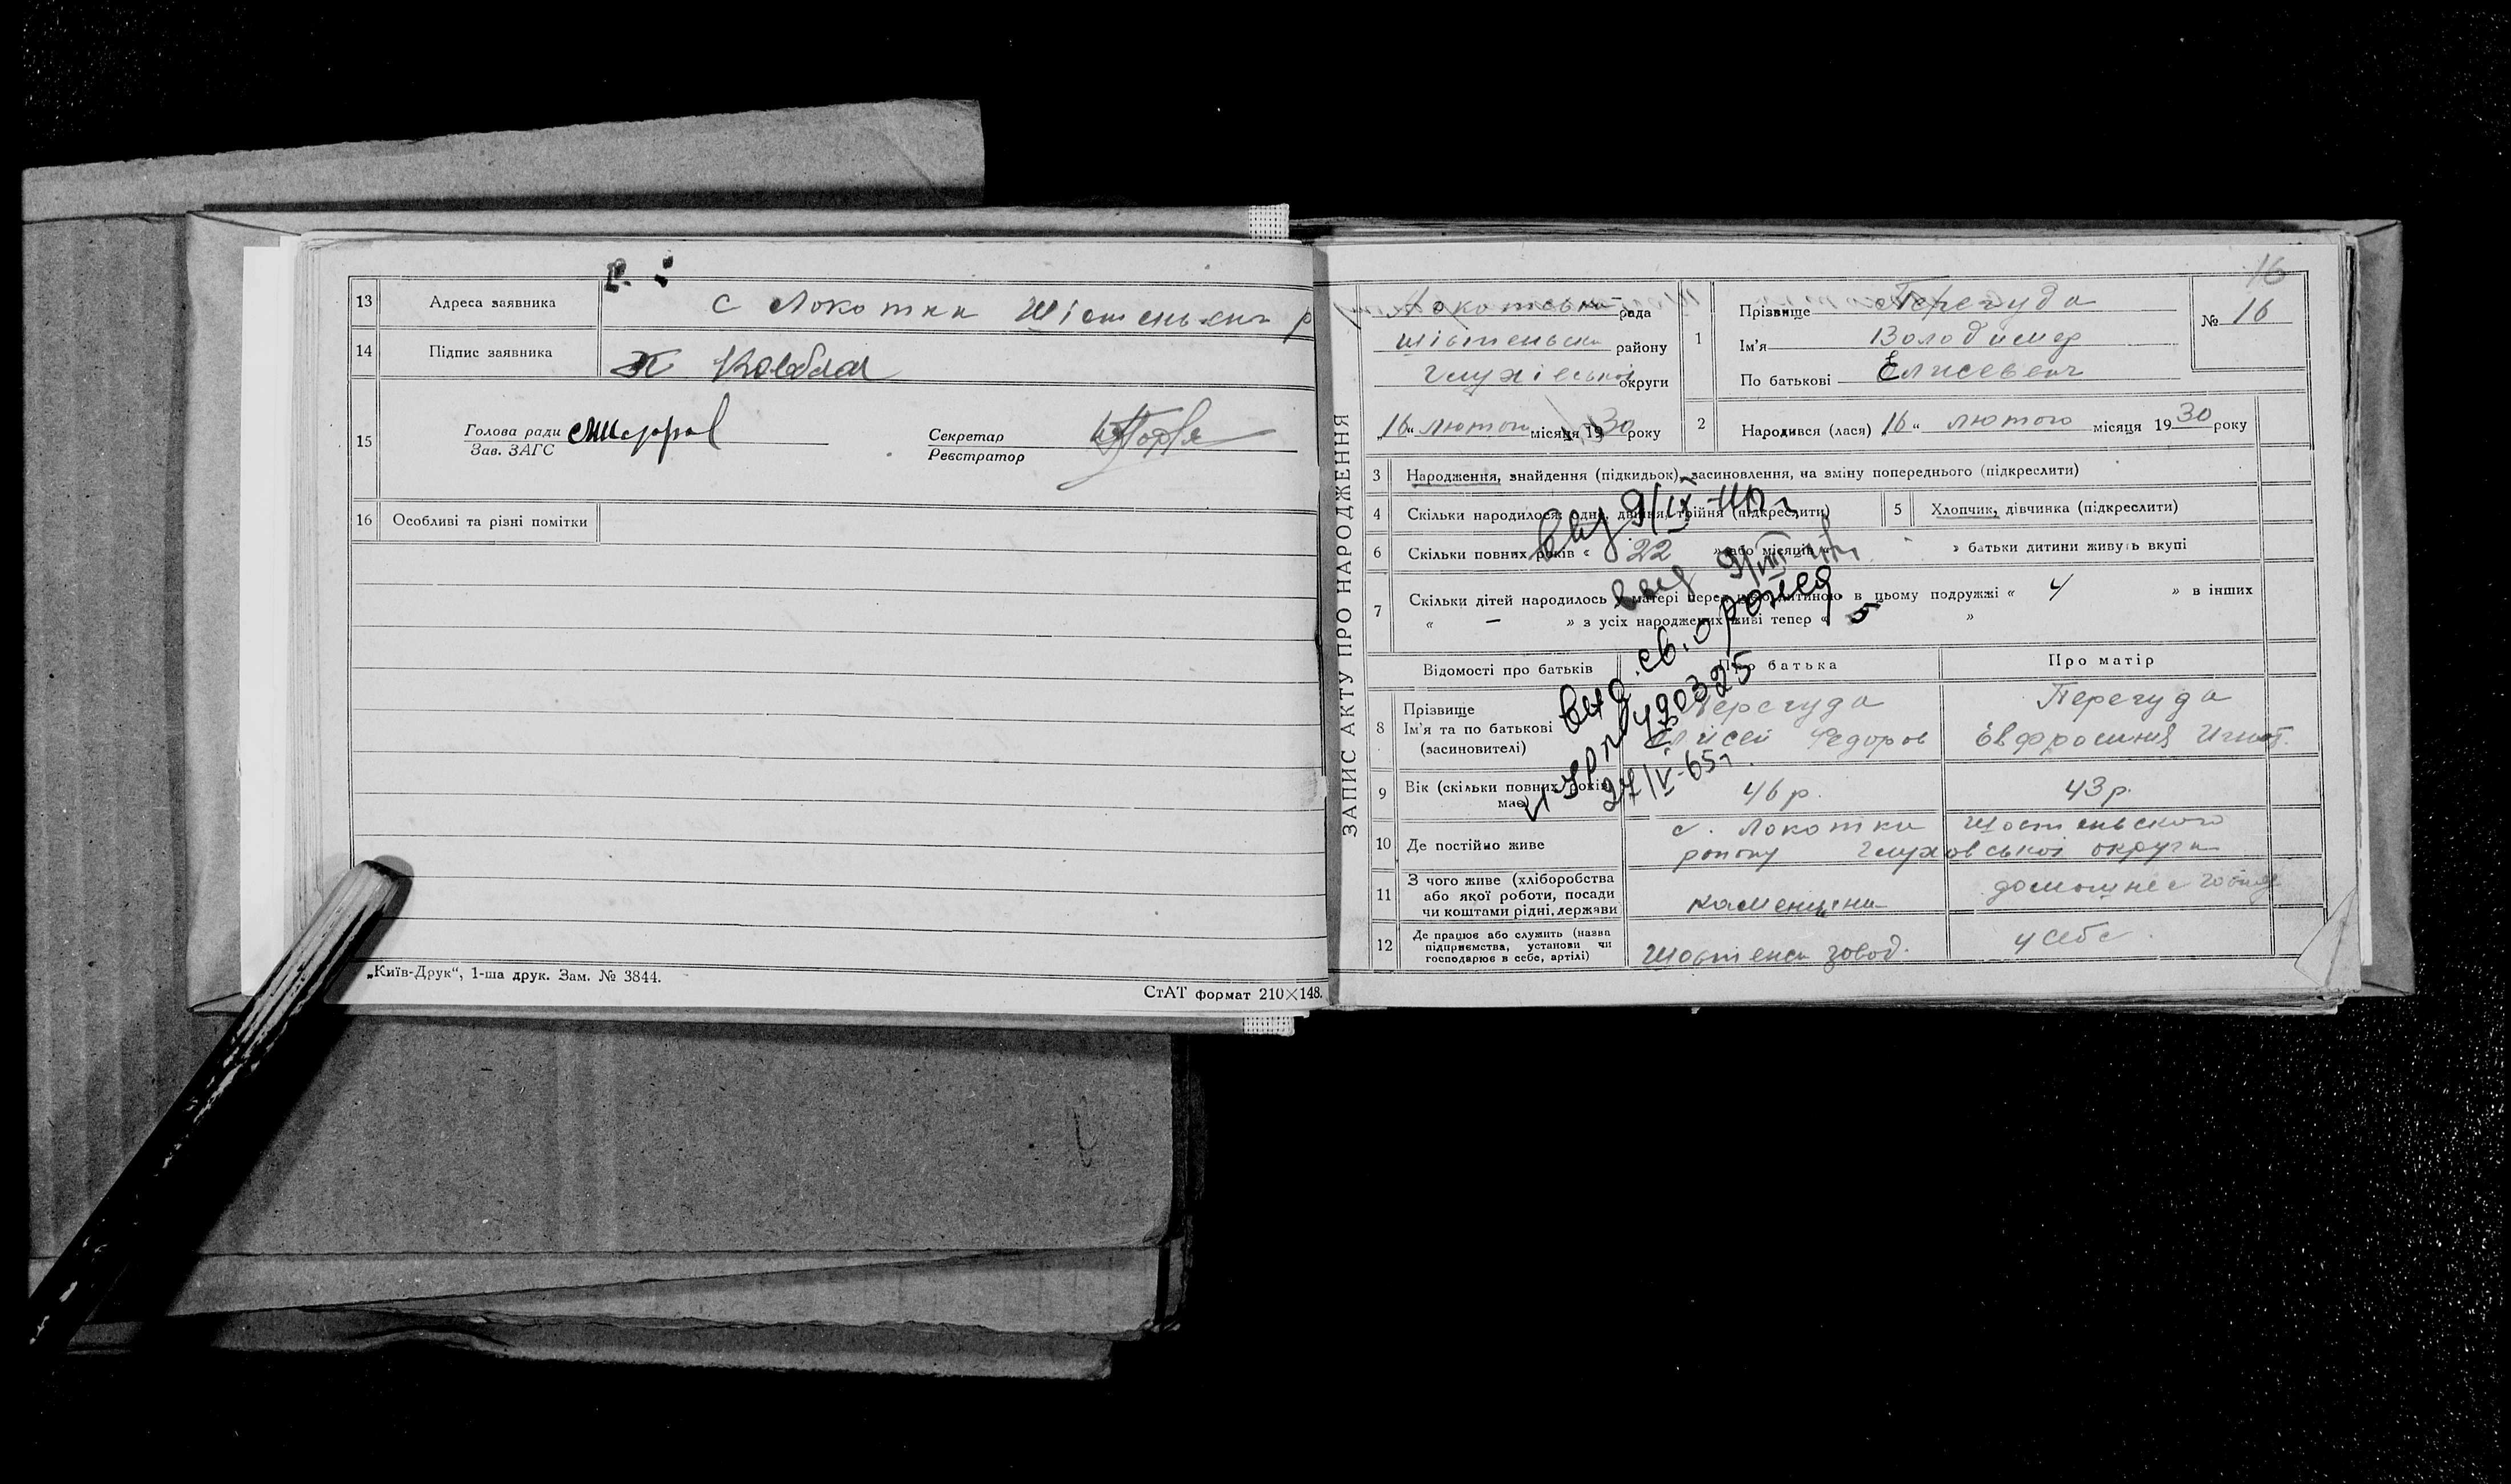 13 Адреса заявника с Локотки
14 Підпис заявника
15 Голова ради
Зав. ЗАГС
Секретар
Реєстратор
16 Особливі та різні помітки
„Київ-Друк“, 1-ша друк. Зам. № 3844.
СтАТ формат 210×148.
ЗАПИС АКТУ ПРО НАРОДЖЕННЯ
16
рада
району
округи
„16“ місяця 1930 року
1 Прізвище Перегуда
Ім'я Володимер
По батькові Елисевич
№ 16
2 Народився (лася) „16“ лютого місяця 1930 року
3 Народження, знайдення (підкидьок), засиновлення, на зміну попереднього (підкреслити)
4 Скільки народилося: одне, двійня, трійня (підкреслити)
5 Хлопчик, дівчинка (підкреслити)
6 Скільки повних років « 22 » або місяців « » батьки дитини живуть вкупі
7 Скільки дітей народилось у матері перед цією дитиною в цьому подружжі « 4 » в інших
« — » з усіх народжених живі тепер « 5 »
Відомості про батьків Про батька Про матір
8 Прізвище Перегуда Перегуда
Ім'я та по батькові Елисей Федоров Евфросиния
(засиновителі)
9 Вік (скільки повних років має) 46 р. 43 р.
10 Де постійно живе с. Локотки Шостеньского
району Глуховської округи
11 З чого живе (хліборобства
або якої роботи, посади
чи коштами рідні, держави
каменщик
12 Де працює або служить (назва
підприємства, установи чи
господарює в себе, артілі)
завод. у себе
выд. св. о рожд.
490325
27/IV-65г.